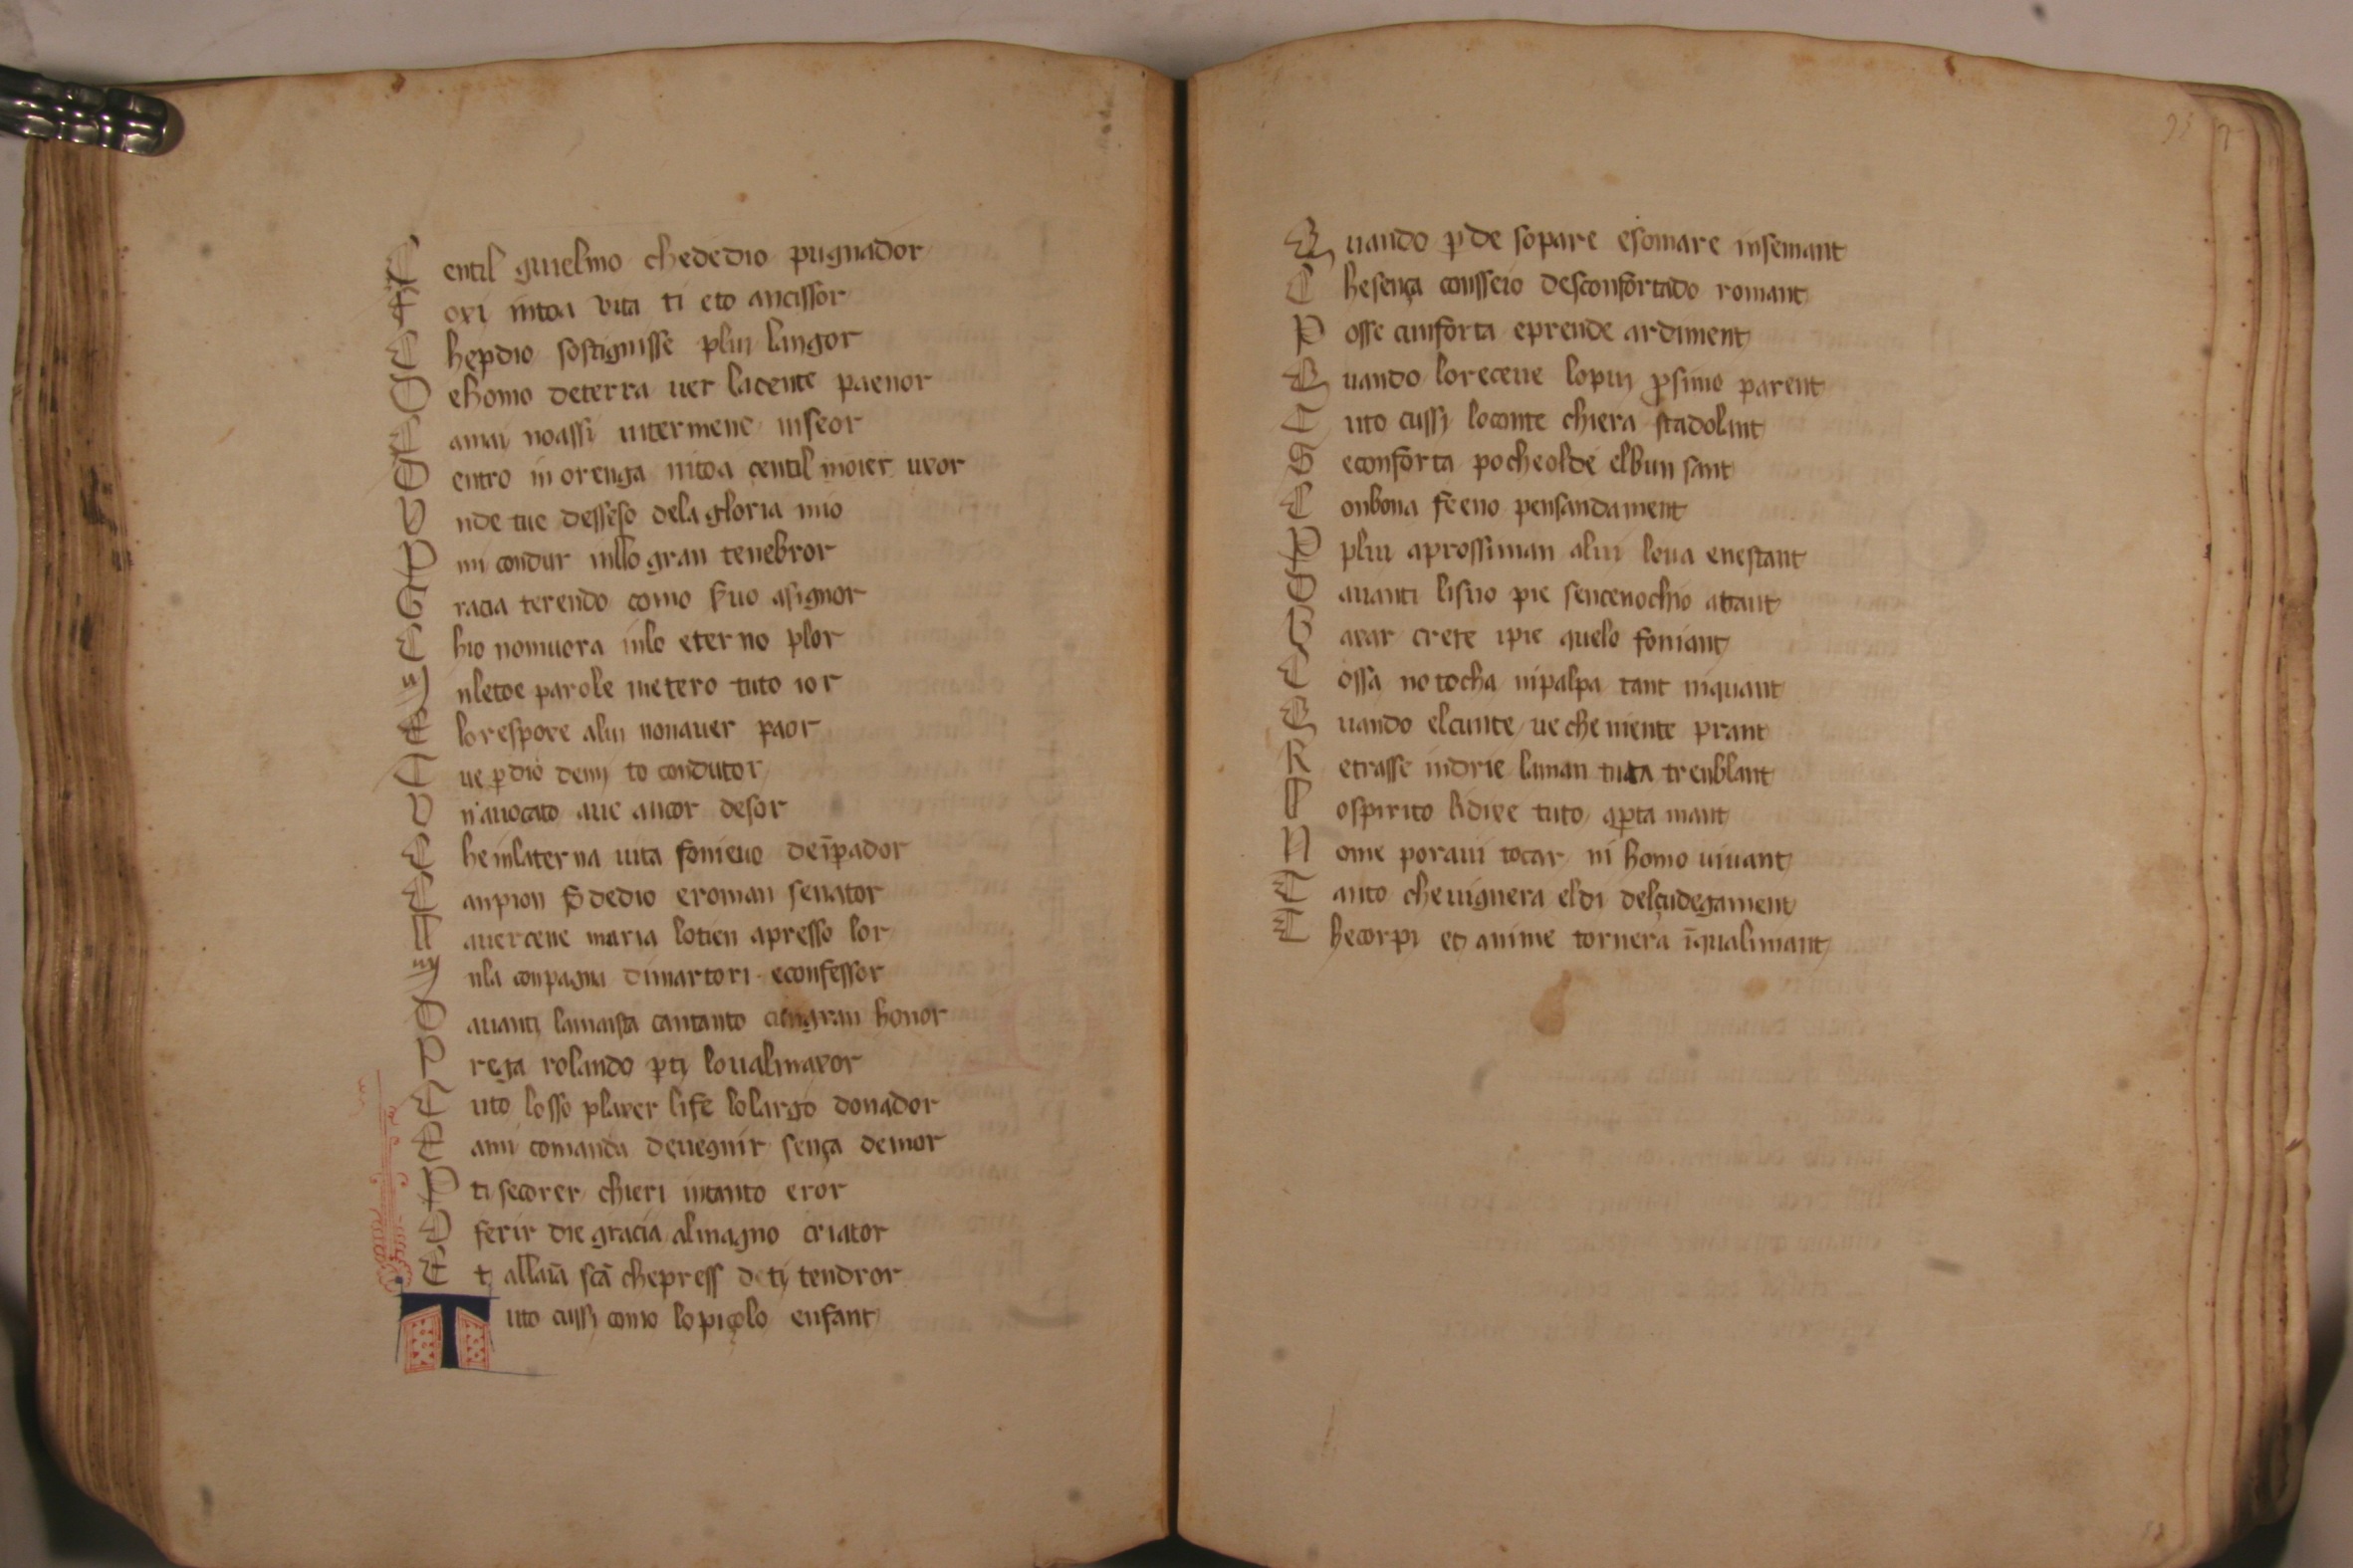 Centil guielmo chededio pugnador
E oxi intoa vita ti eto ancissor
C hepdio sostignisse plui langor
D ehomo deterra uer lacente paenor
C amai noassi uitermene inseor
D entro in orenga nitoa çentil moier uxor
V nde tue desseso dela gloria mio
P mi condur inllo gran tenebror
G racia terendo como suo asignor
C hio nomuora inlo eterno plor
nletoe parole metero tuto ior
E lorespoxe alui nonauer paor
A ue pdio deuij to condutor
V n auocato aue ancor desor
C heinlaterna uita fonieuo deipador
C anpion dedio eroman senator
L auercene maria lotien apresso lor
nla conpagna dimartori econfessor
D auantj lamaista cantanto cungran honor
P rega rolando ptj loualinaxor
T uto losso plaxer life lolargo donador
E ami comanda deuegnir sença demor
P ti secorer chieri intanto eror
O ferir die gracia almagno criator
E tj allaiā scā chepress detj tendror
T uto cussj como lopiçolo enfant
Q uando pde sopare esomare insemant
C hesença consseio desconfortado romant
P osse cunforta eprende ardiment
Q uando loreceue lopiu psimo parent
T uto cussj loconte chiera stadolant
S econforta pocheolde elbun sant
C onbona fe eno pensandament
P plui aprossiman alui leua enestant
D auanti lisuo pie sencenochio atant
B axar crete ipie quelo foniant
C ossa no tocha nipalpa tant niquant
Q uando elcunte ue che niente prant
R etrasse indrie laman tuta trenblant
L ospirito lidixe tuto apta mant
N ome poraui tocar ni homo uiuant
T anto cheuignera eldi delçudegament
C hecorpi et anime tornera īqualimant